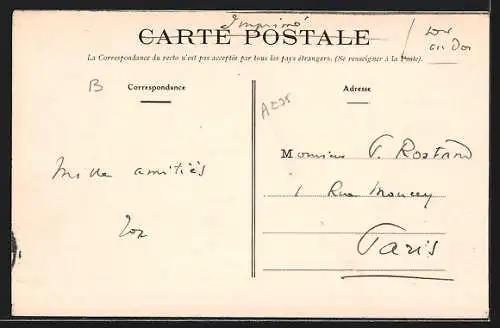 Imprimé
CARTE POSTALE
La Correspondance du recto n'est pas acceptée par tous les pays étrangers. (Se renseigner à la Poste).
voir
au Dos
B
Correspondance
Adresse
Mille amitiés
Monsieur T. Rostand
1 Rue Moncey
Paris